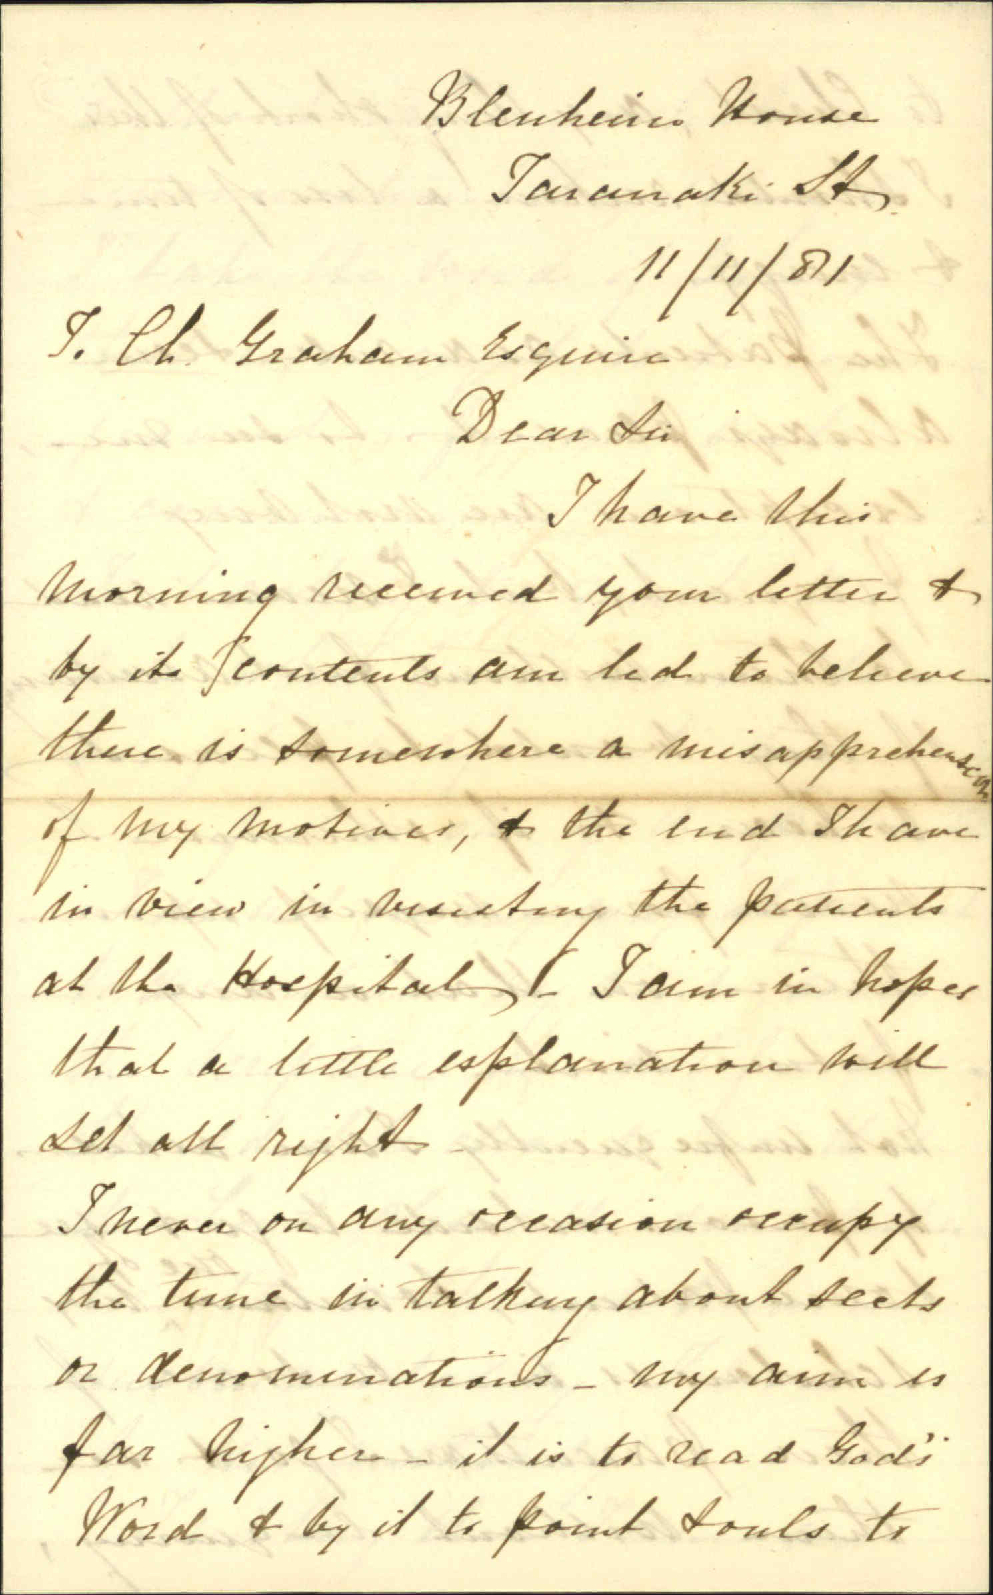 Blenheim House
Taranaki St
11/11/81
T. Ch. Graham Esquire
Dear Sir
I have this
morning received your letter &
by its contents am led to believe
there is somewhere a misapprehension
of my motives, & the end I have
in view in visiting the patients
at the Hospital, - I am in hopes
that a little explanation will
set all right -
I never on any occasion occupy
the time in talking about sects
or denominations - my aim is
far higher - it is to read God's
Word & by it to point souls to